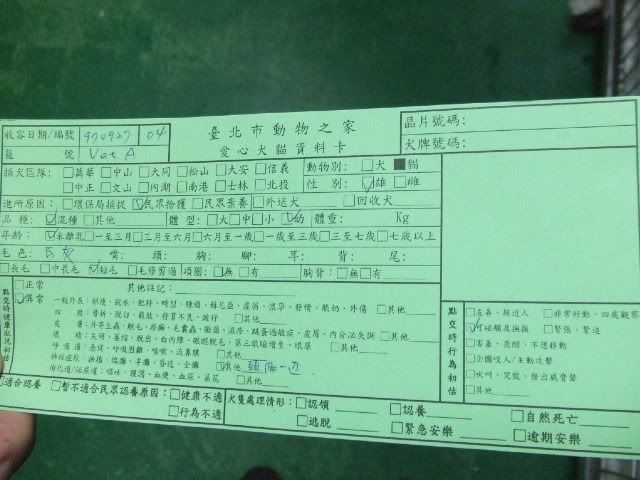 臺北市動物之家
愛心犬貓資料卡
收容日期/編號 970927 04
籠 號 Vet A
晶片號碼:
犬牌號碼:
捕犬區隊: □萬華 □中山 □大同 □松山 □大安 □信義
□中正 □文山 □內湖 □南港 □士林 □北投
動物別: □犬 ■貓
性 別: ☑雄 □雌
進所原因: □環保局捕捉 ☑民眾拾獲 □民眾棄養 □外送犬 □回收犬
品種: ☑混種 □其他 體型: □大 □中 □小 ☑幼 體重: Kg
年齡: ☑未離乳 □一至二月 □三月至六月 □六月至一歲 □一歲至三歲 □三至七歲 □七歲以上
毛色: 白灰 嘴: 頭: 胸: 腳: 耳: 背: 尾:
□長毛 □中長毛 ☑短毛 □毛修剪過 項圈: □無 □有 胸背: □無 □有
點交時健康狀況初估
□正常
☑異常
其他註記:
一般外表: 削瘦、脫水、肥胖、畸型、腫瘤、赫尼亞、虛弱、懷孕、發情、脹奶、外傷 □其他
四 肢: 骨折、脫臼、截肢、發育不良、跛行 □其他
皮 膚: 外寄生蟲、脫毛、疥癬、毛囊蟲、黴菌、濕疹、跳蚤過敏症、皮屑、內分泌失調 □其他
呼吸道: 急促、呼吸困難、咳嗽、流鼻膿 □其他
☑其他 頭偏一邊
消化道/泌尿道: 嘔吐、腹瀉、血便、血尿、寄生 □其他
點交時行為初估
□友善、親近人 □非常好動、四處觀察
☑可碰觸及撫摸 □緊張、緊迫
□害羞、畏縮、不想移動
□企圖咬人/主動攻擊
□吠叫、哭號、發出威脅聲
□其他
□適合認養 □暫不適合民眾認養原因: □健康不適
□行為不適
犬隻處理情形: □認領 □認養 □自然死亡
□逃脫 □緊急安樂 □逾期安樂